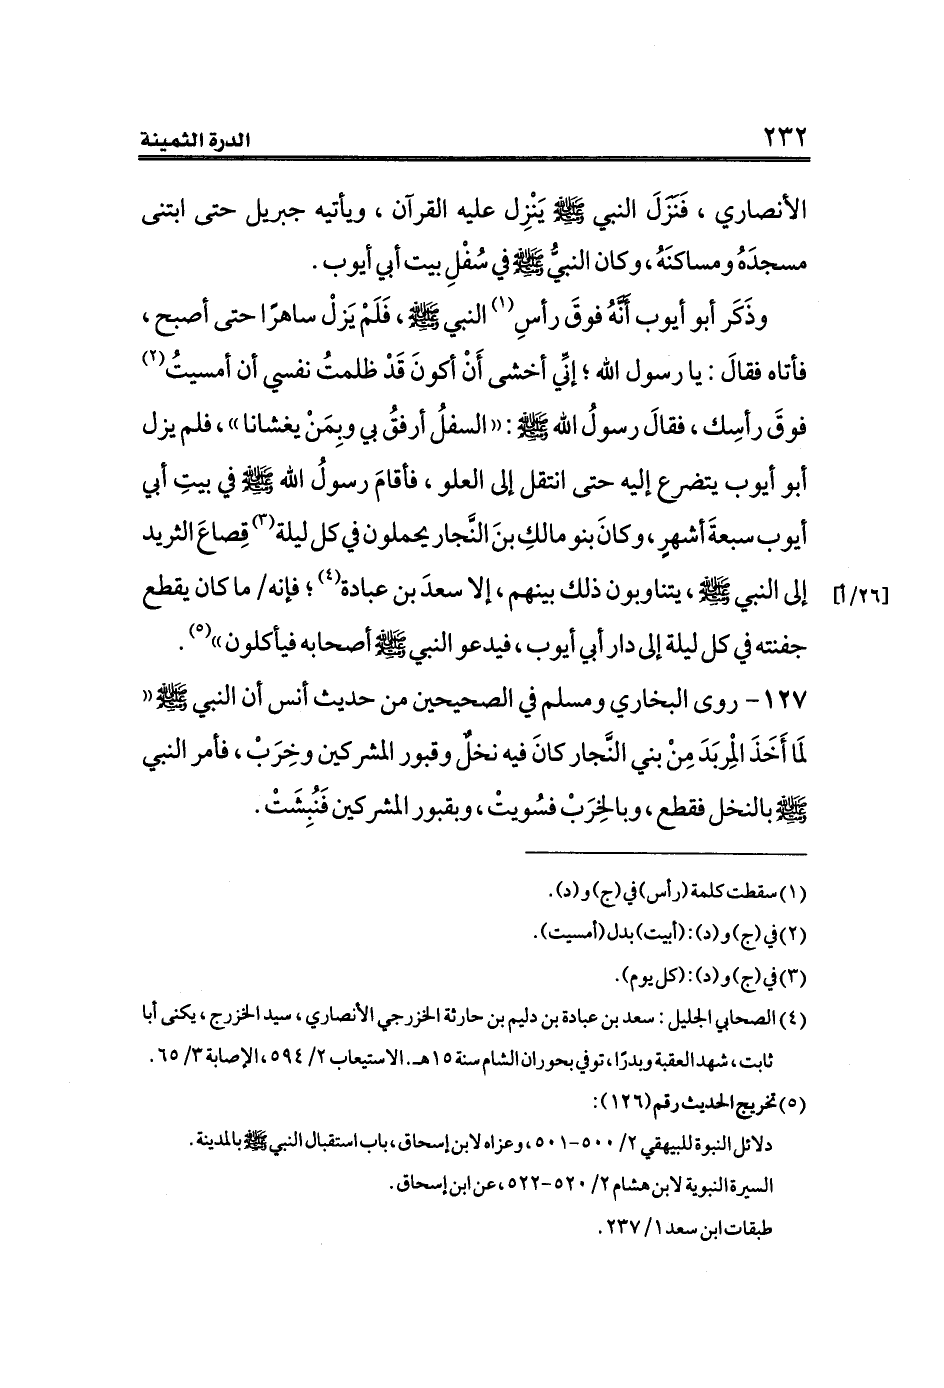 ٢٣٢ الدرة الثمينة
الأنصاري ، فَنَزَلَ النبي ﷺ يَنْزِل عليه القرآن ، ويأتيه جبريل حتى ابتنى
مسجدَهُ ومساكنَهُ ، وكان النبيُّ ﷺ في سُفْلِ بيت أبي أيوب .
وذَكَر أبو أيوب أنَّهُ فوقَ رأسِ(١) النبي ﷺ ، فَلَمْ يَزلْ ساهرًا حتى أصبح ،
فأتاه فقالَ : يا رسول الله ؛ إنِّي أخشى أنْ أكونَ قَدْ ظلمتُ نفسي أن أمسيتُ(٢)
فوقَ رأسِك ، فقالَ رسولُ الله ﷺ : «السفلُ أرفقُ بي وبِمَنْ يغشانا» ، فلم يزل
أبو أيوب يتضرع إليه حتى انتقل إلى العلو ، فأقامَ رسولُ الله ﷺ في بيتِ أبي
أيوب سبعةَ أشهرٍ ، وكانَ بنو مالكِ بنَ النَّجار يحملون في كل ليلة(٣) قِصاعَ الثريد
إلى النبي ﷺ ، يتناوبون ذلك بينهم ، إلا سعدَ بن عبادة(٤) ؛ فإنه/ ما كان يقطع [٢٦/أ]
جفنته في كل ليلة إلى دار أبي أيوب ، فيدعو النبي ﷺ أصحابه فيأكلون»(٥) .
١٢٧- روى البخاري ومسلم في الصحيحين من حديث أنس أن النبي ﷺ «
لمَا أَخَذَ الْمِربَدَ مِنْ بني النَّجار كانَ فيه نخلٌ وقبور المشركين وخِرَبْ ، فأمر النبي
ﷺ بالنخل فقطع ، وبالخِرَبْ فسُويتْ ، وبقبور المشركين فَنُبِشَتْ .
(١) سقطت كلمة (رأس) في (ج) و(د).
(٢) في (ج) و(د): (أبيت) بدل (أمسيت).
(٣) في (ج) و(د): (كل يوم).
(٤) الصحابي الجليل : سعد بن عبادة بن دليم بن حارثة الخزرجي الأنصاري ، سيد الخزرج ، يكنى أبا
ثابت ، شهد العقبة وبدرًا ، توفي بحوران الشام سنة ١٥هـ. الاستيعاب ٢/ ٥٩٤ ، الإصابة ٣/ ٦٥ .
(٥) تخريج الحديث رقم (١٢٦):
دلائل النبوة للبيهقي ٢/ ٥٠٠-٥٠١ ، وعزاه لابن إسحاق ، باب استقبال النبي ﷺ بالمدينة .
السيرة النبوية لابن هشام ٢/ ٥٢٠-٥٢٢ ، عن ابن إسحاق .
طبقات ابن سعد ١/ ٢٣٧ .